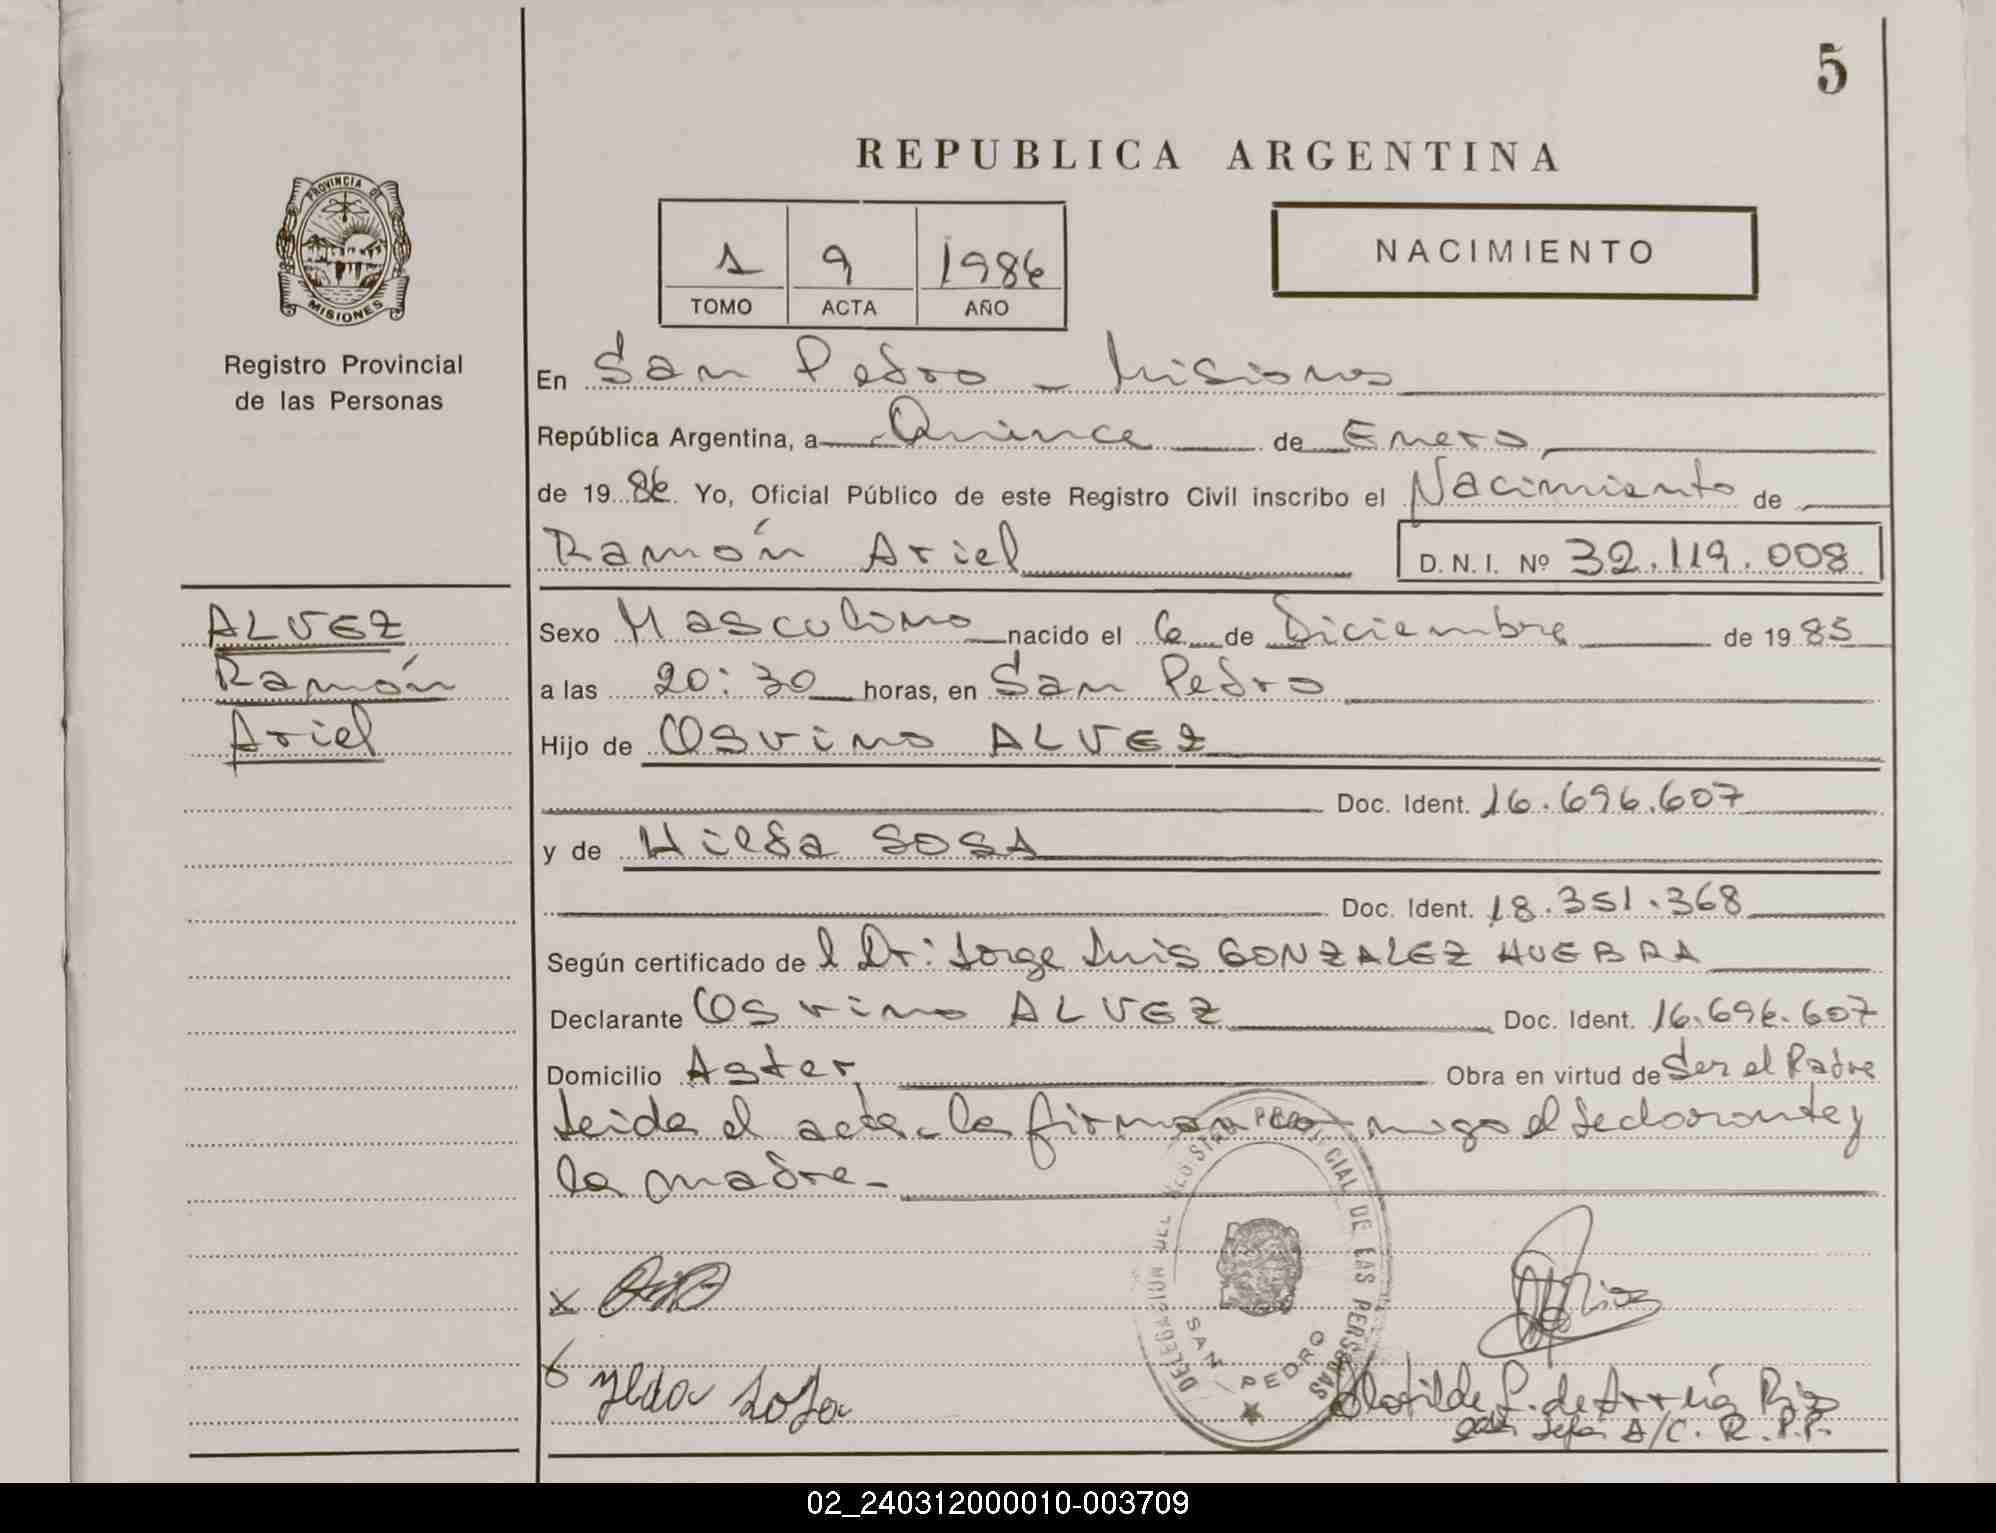 5
REPUBLICA ARGENTINA
PROVINCIA DE
MISIONES
Registro Provincial
de las Personas
1 9 1986
TOMO ACTA AÑO
NACIMIENTO
En San Pedro - Misiones
República Argentina, a Quince de Enero
de 19 86 Yo, Oficial Público de este Registro Civil inscribo el Nacimiento de
Ramón Ariel D.N.I. Nº 32.119.008
ALVEZ
Ramón
Ariel
Sexo Masculino nacido el 6 de Diciembre de 19 85
a las 20:30 horas, en San Pedro
Hijo de Osvino ALVEZ
Doc. Ident. 16.696.607
y de Hilda SOSA
Doc. Ident. 18.351.368
Según certificado del Dr: Jorge Luis GONZALEZ HUEBRA
Declarante Osvino ALVEZ Doc. Ident. 16.696.607
Domicilio Aster Obra en virtud de Ser el Padre
Leida el acta la firman conmigo el declarante y
la madre-
DELEGACION DEL REGISTRO PROVINCIAL DE LAS PERSONAS
SAN PEDRO
x
Ylda Sosa
Clotilde de Arrúa Rios
Jefa A/C. R.P.P.
02_240312000010-003709